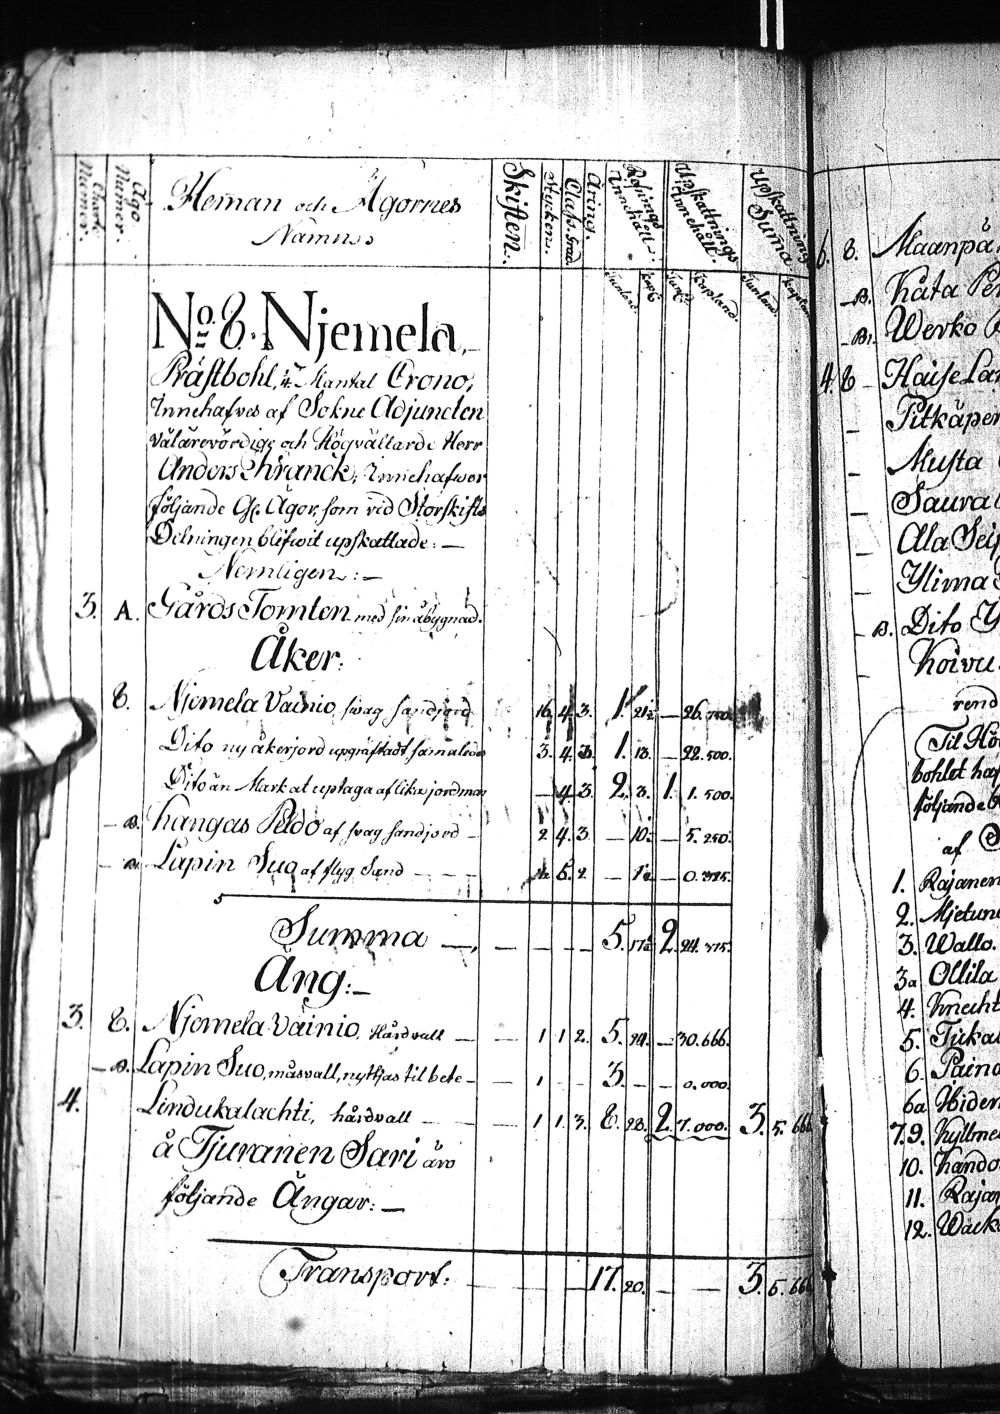 Charte Numer.
Ägo Numer.
Heman och Ägornes
Namn
Skiften.
Styckem.
Class. Grad.
Åring.
Refnings Innehålt
Tunland.
Kapl.
Upskattnings Innehålt.
Tunl.
Kapland.
Upskattning Suma.
Tunland.
Kaplan
No 8. Njemela,
Prästbohl, Mantal Crono,
Innehafves af Sokne Adjuncten
välärevördige och Högvällärde Herr
Anders Chranck, Innehafwer
följande Ägor, som vid Storskifts
Delningen blifwit upskattade: —
Nemligen: —
3. A. Gårds Tomten med sin åbygnad.
Åker:
8. Njemela Vainio, svag sandjord 16. 4. 3. 1. 21½ — 26.750.
Dito ny åkerjord upgräftadt samaledes 3. 4. 3. 1. 13. — 22.500.
Dito än Mark at uptaga af lika jordmon — 4. 3. 2. 3. 1. 1.500.
— B. Kangas Peldo af svag sandjord — 2 4. 3. — 10½ — 5.250.
— B. Lapin Suo af flyg Sand — — — ½ 5. 2. — 1½ — 0.375.
Summa — — — — — 5. 17½ 2. 24.375.
Äng: —
3. 8. Njemela Vainio, Hårdvall — — 1 1 2. 5. 24. — 30.666.
— B. Lapin Suo, måsvall, nyttjas til bete — — 1 — 3. — — 0.000.
4. Lindukalachti, hårdvall — — — 1 1. 3. 8. 28. 2. 7.000. 3. 5.666
å Tjuranen Sari äro
följande Ängar: —
Transport: — — — — 17. 20. — — 3. 5.666
6. 8. Maanpä
— B. Kåta Pe
— B. Werko
4. 8 — Haise La
— Pitkäper
— Musta
— Saura
— Ala Sei
— Ylima
— B. Dito
Koivu
rend
Til Hö
bohlet haf
följande
af
1. Rajanen
2. Mjetun
3. Wallo.
3a Ollila
4. Knecht
5. Tuka
6. Paino
6a Hiden
7.9. Kyllme
10. Kando
11. Rajan
12. Wack